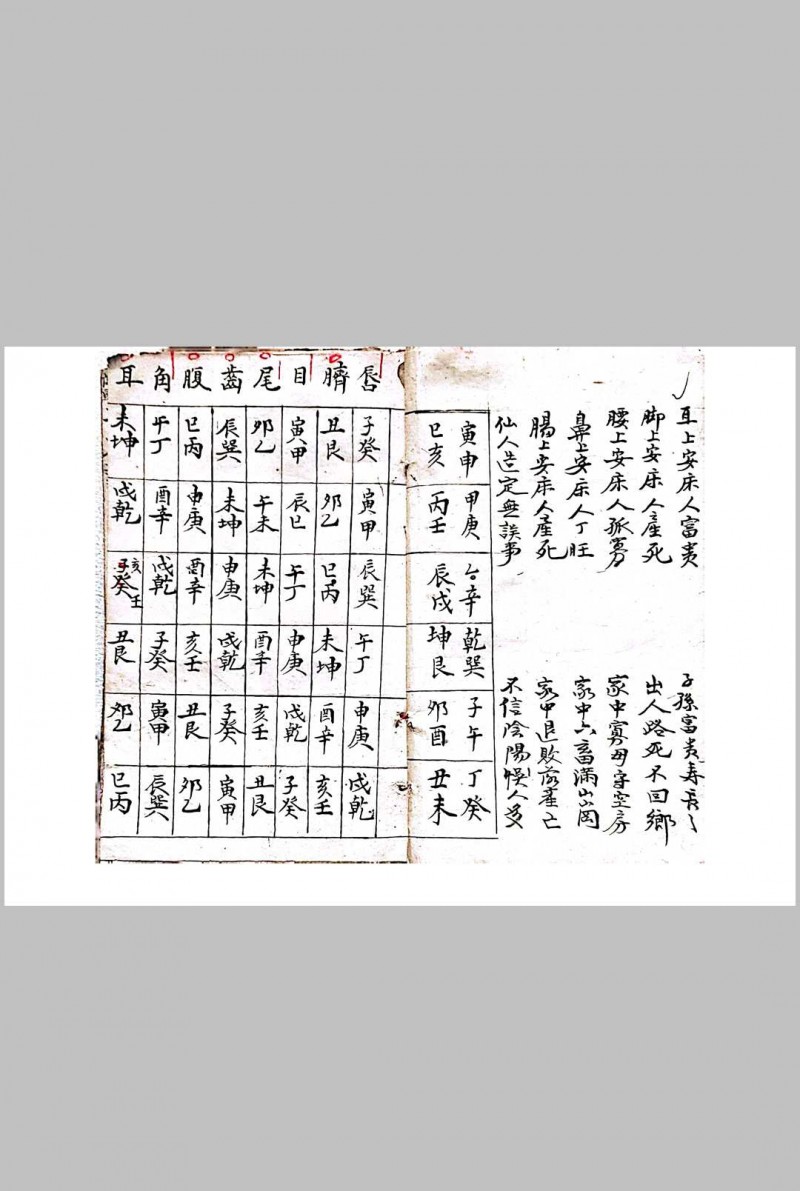 耳上安床人富贵 子孫富贵寿長々
脚上安床人產死 出人路死不回鄉
腰上安床人孤寡 家中寡母守空房
鼻上安床人丁旺 家中六畜滿山岡
腸上安床人產死 家中退敗產亡
仙人造定無誤事 不信陰陽悮人多
寅申 甲庚 辛 乾巽 子午 丁癸
巳亥 丙壬 辰戌 坤艮 卯酉 丑未
唇 子癸 寅甲 辰巽 午丁 申庚 戌乾
臍 丑艮 卯乙 巳丙 未坤 酉辛 亥壬
目 寅甲 辰巳 午丁 申庚 戌乾 子癸
尾 卯乙 午未 未坤 酉辛 亥壬 丑艮
齒 辰巽 未坤 申庚 戌乾 子癸 寅甲
腹 巳丙 申庚 酉辛 亥壬 丑艮 卯乙
角 午丁 酉辛 戌乾 子癸 寅甲 辰巽
耳 未坤 戌乾 子癸 亥壬 丑艮 卯乙 巳丙